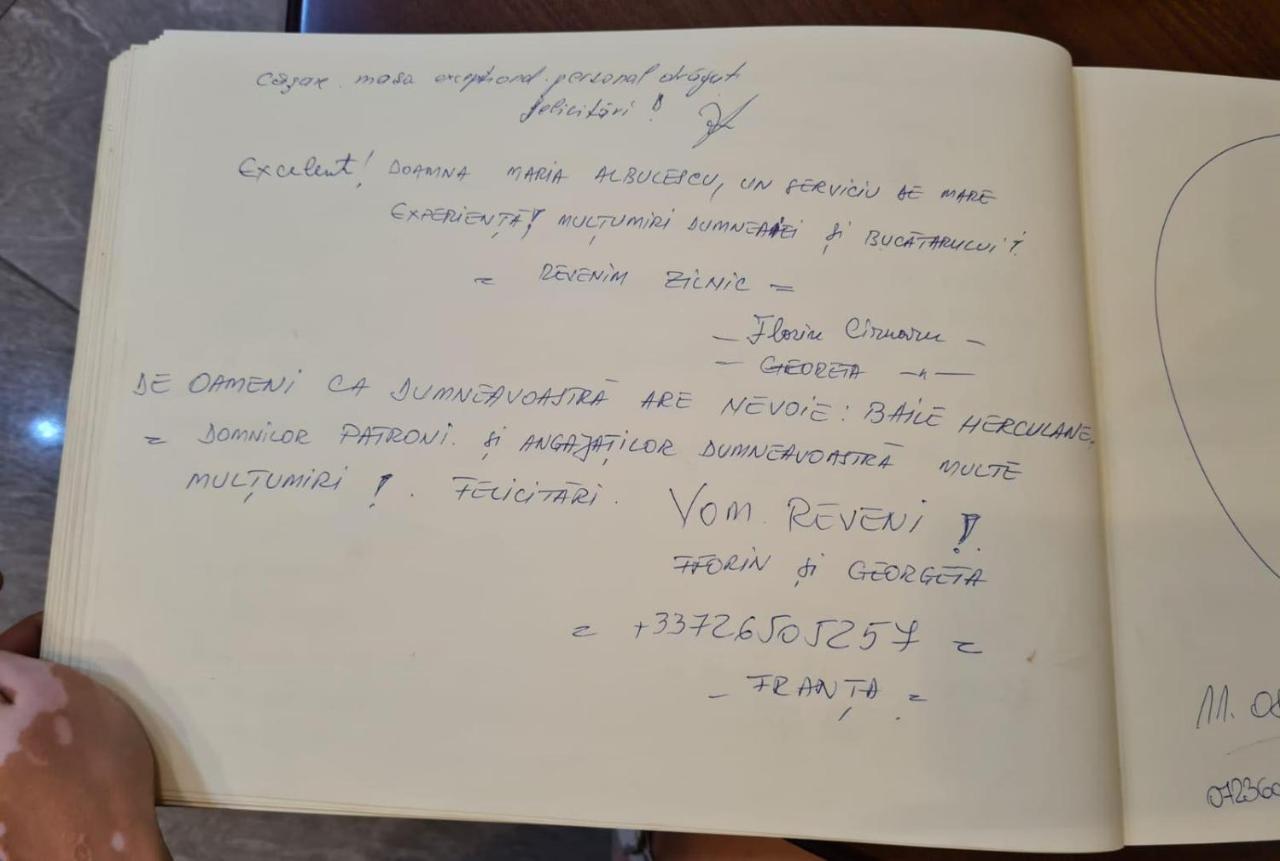 masa excepțional. personal drăguț
felicitări !
Excelent! DOAMNA MARIA ALBULESCU, UN SERVICIU DE MARE
EXPERIENȚĂ! MULȚUMIRI DUMNEAEI ȘI BUCĂTARULUI!
= REVENIM ZILNIC =
- Florin -
- GEORETA -〃-
DE OAMENI CA DUMNEAVOASTRĂ ARE NEVOIE: BAILE HERCULANE.
= DOMNILOR PATRONI. ȘI ANGAJAȚILOR DUMNEAVOASTRĂ MULTE
MULȚUMIRI !. FELICITĂRI.
VOM. REVENI !
FLORIN ȘI GEORGETA
= +33726505257 =
- FRANȚA =
11. 08
07236